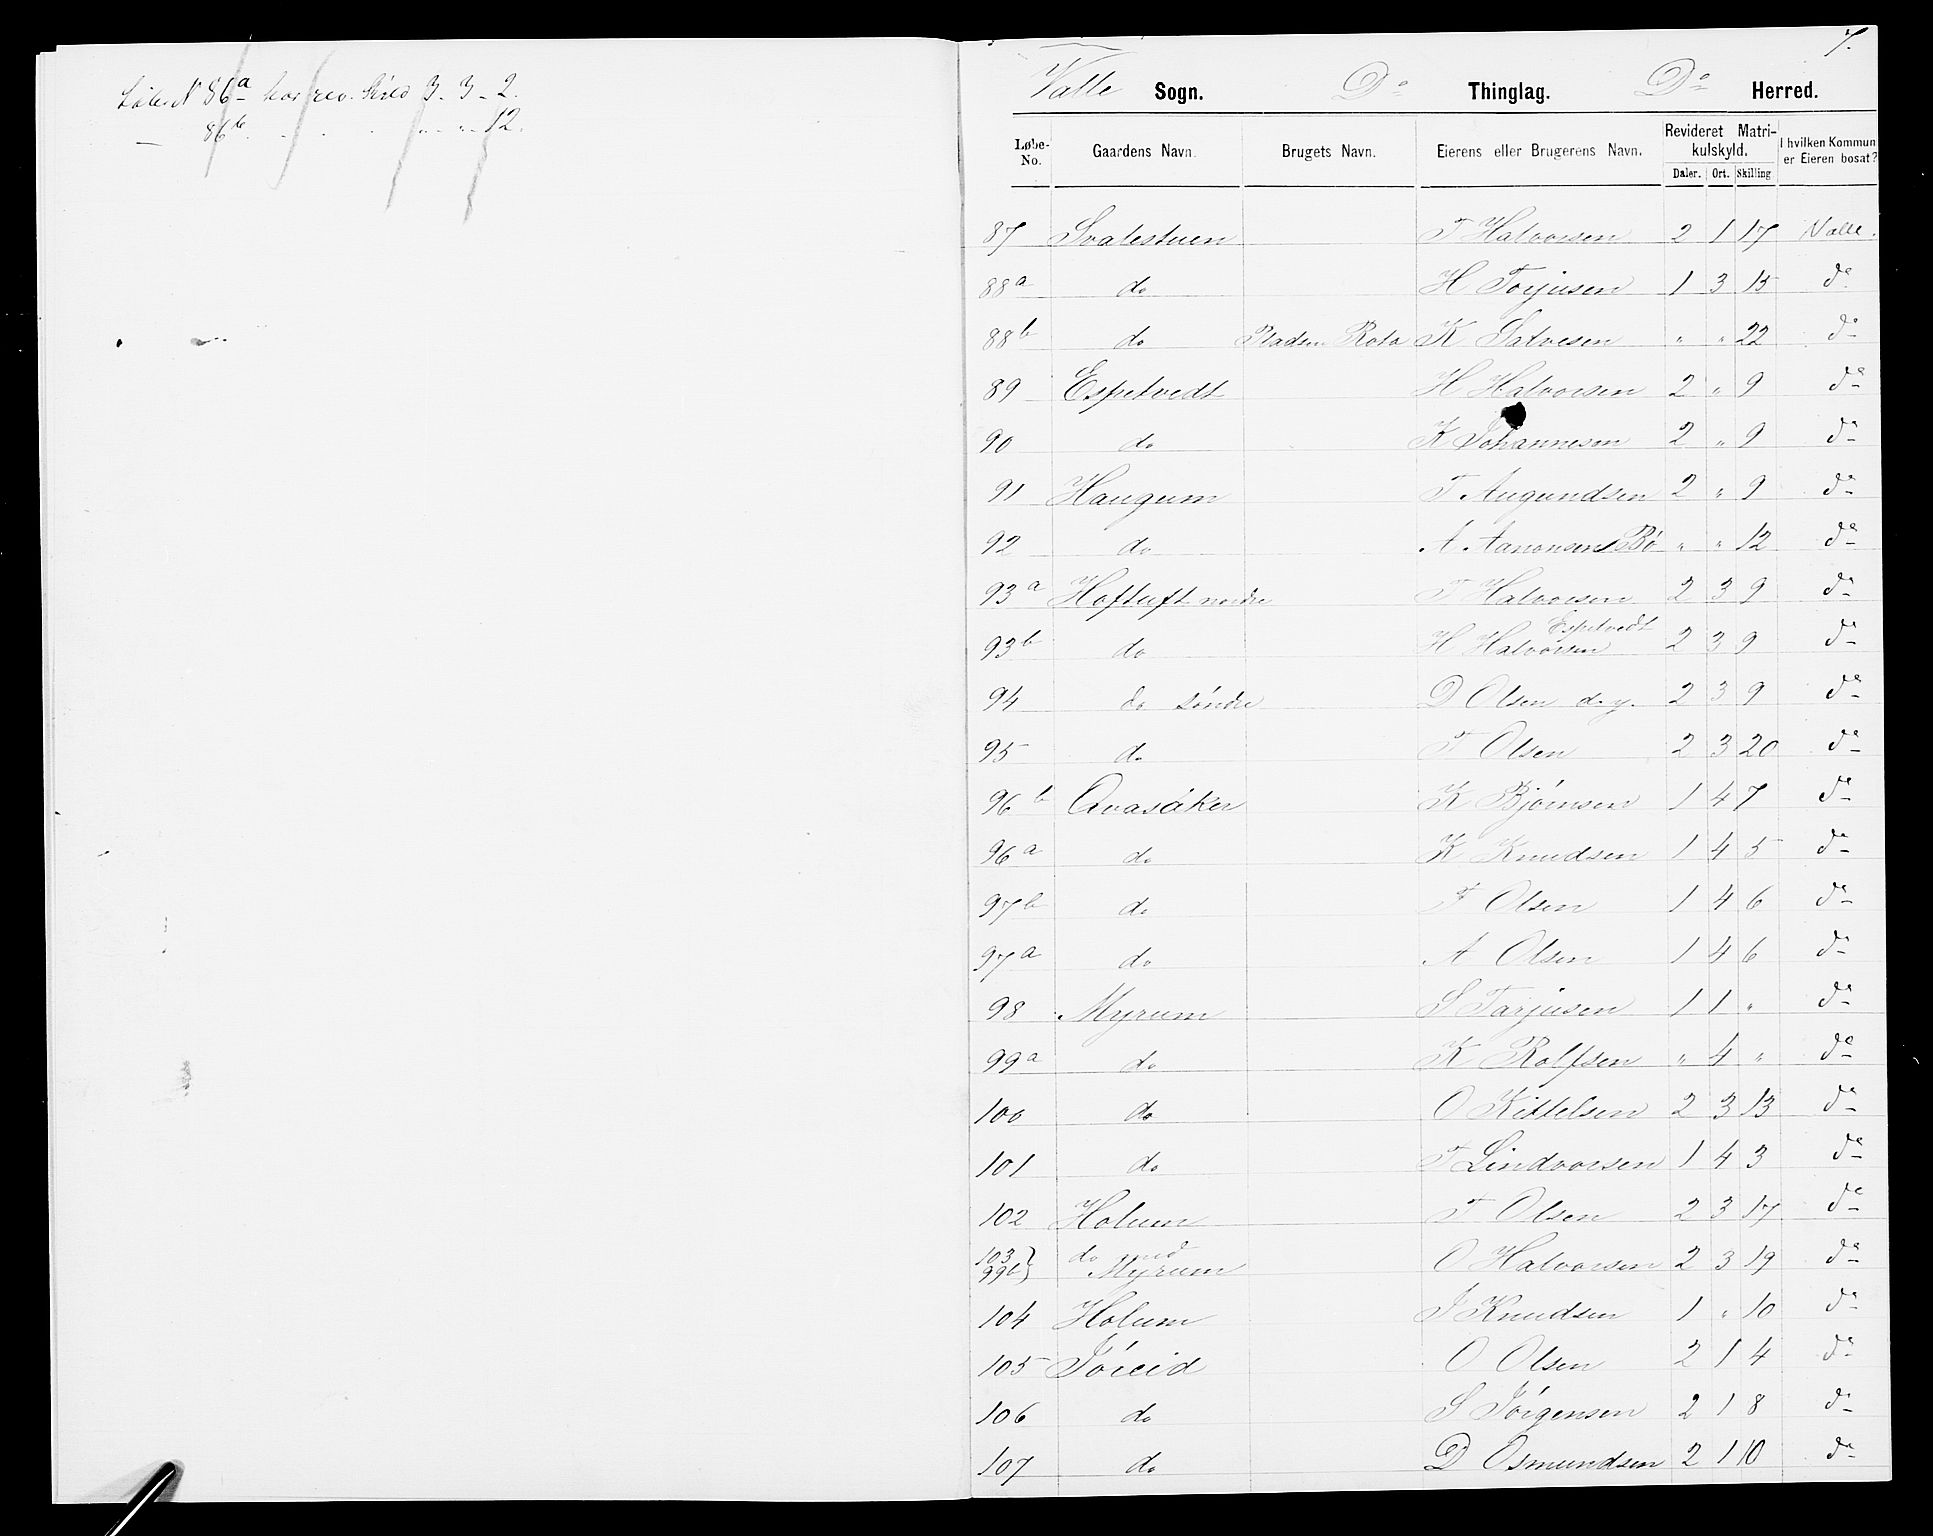 Löbe N 86a har rev. Skyld 3 - 3 - 2.
— 86b. . . . " - " - 12.
7.
Valle Sogn. Do Thinglag. Do Herred.
Løbe-No. Gaardens Navn. Brugets Navn. Eierens eller Brugerens Navn. Revideret Matrikulskyld. Daler. Ort. Skilling I hvilken Kommun er Eieren bosat?
87 Svalestuen T Halvorsen 2 1 17 Valle.
88a do H Torjusen 1 3 15 do
88b do Pladsen Rota K Salvesen " " 22 do
89 Espetvedt H Halvorsen 2 " 9 do
90 do K Johannesen 2 " 9 do
91 Haugum T Augundsen 2 " 9 do
92 do A Aanonsen Bö " " 12 do
93a Hoftuft nordre T Halvorsen 2 3 9 do
93b do H Halvorsen Espetvedt 2 3 9 do
94 do söndre D Olsen d.y. 2 3 9 do
95 do T Olsen 2 3 20 do
96b Qvasåker K Bjørnsen 1 4 7 do
96a do K Knudsen 1 4 5 do
97b do T Olsen 1 4 6 do
97a do A Olsen 1 4 6 do
98 Myrum S Tarjusen 1 1 " do
99a do K Rolfsen " 4 " do
100 do O Kittelsen 2 3 13 do
101 do T Lindvorsen 1 4 3 do
102 Holum T Olsen 2 3 17 do
103 99b} do med Myrum O Halvorsen 2 3 19 do
104 Holum J Knudsen 1 " 10 do
105 Jöreid O Olsen 2 1 4 do
106 do S Jörgensen 2 1 8 do
107 do D Osmundsen 2 1 10 do